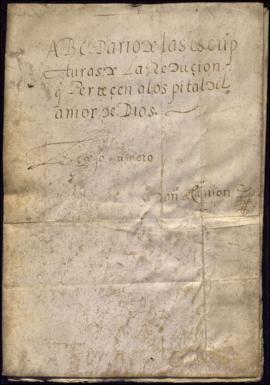 ABCDario de las escrip
turas de La Reducion
q Perteçen alospital del
amor de Dios.
Legajo primero
Juan